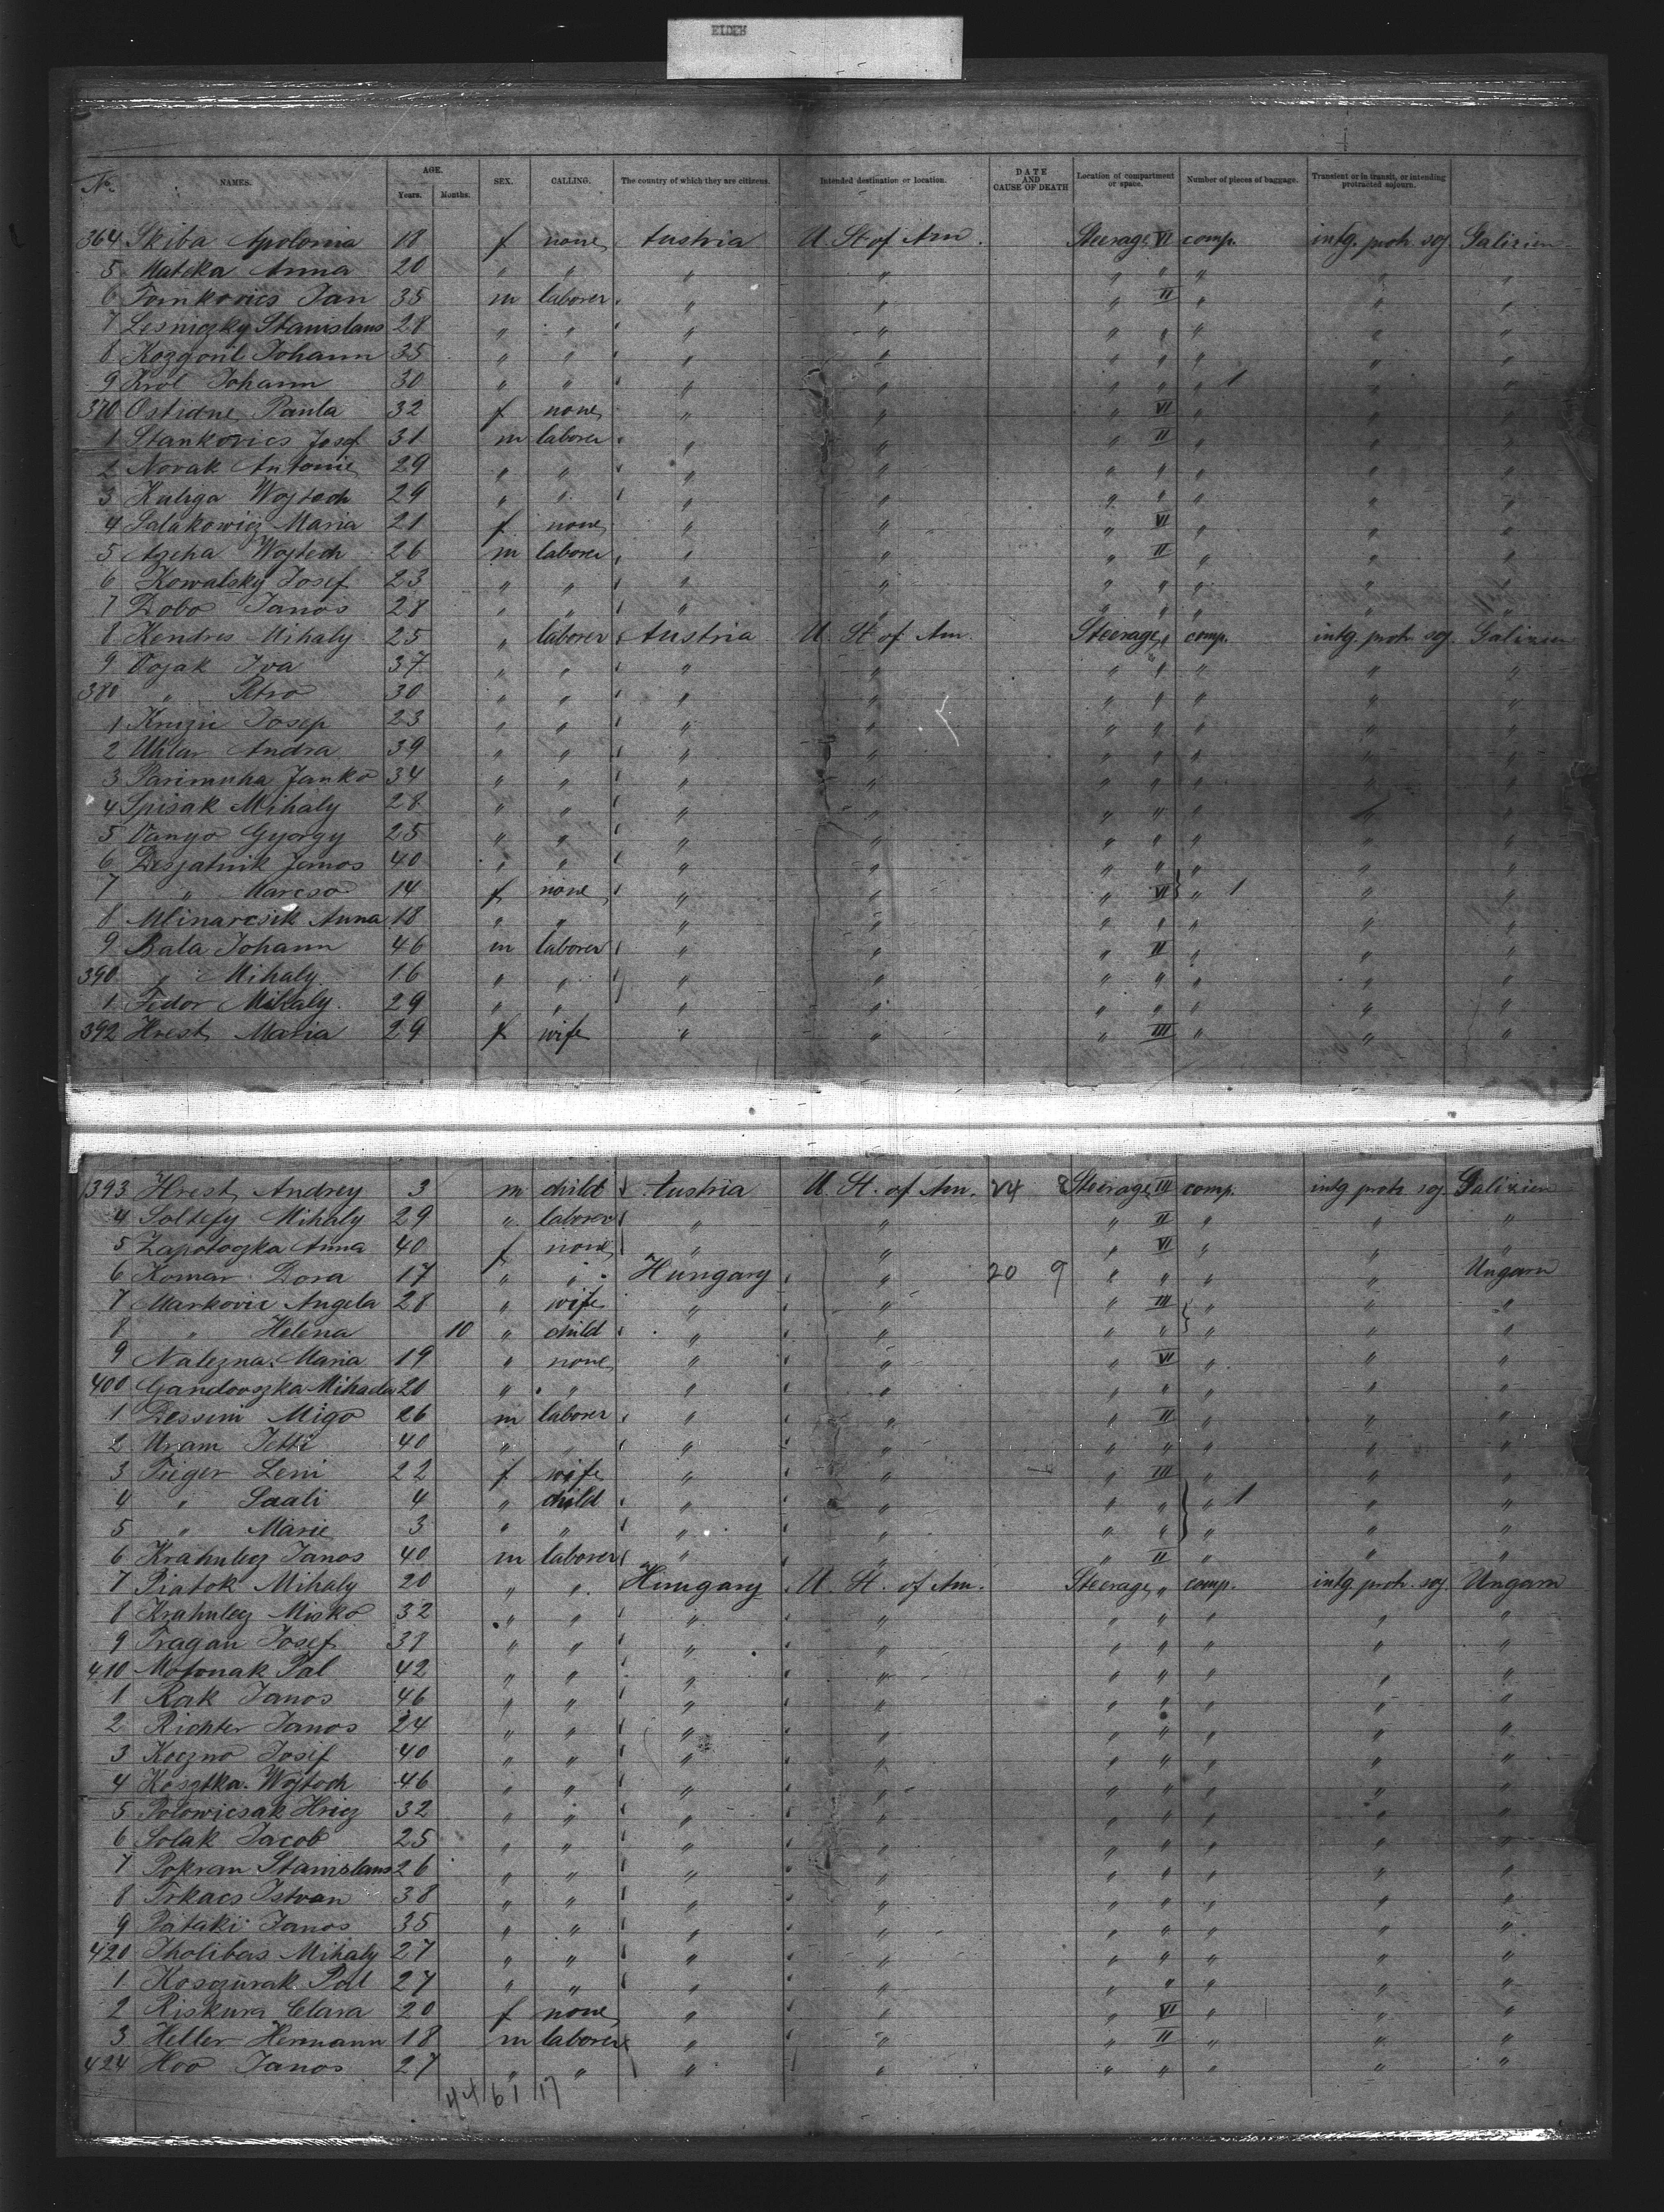 No. NAMES. AGE. Years. Months. SEX. CALLING. The country of which they are citizens. Intended destination or location. DATE AND CAUSE OF DEATH Location of compartment or space. Number of pieces of baggage. Transient or in transit, or intending protracted sojourn.
364 Skiba Apolonia 18 f none Austria U. St of Am. Steerage VI comp. intg. protr. soj. Galizien
5 Mateka Anna 20 " " " " " " " " "
6 Tomkovics Jan 35 m laborer " " " II " " "
7 Lesniczky Stanislaus 28 " " " " " " " " "
8 Kozgoril Johann 35 " " " " " " " " "
9 Krol Johann 30 " " " " " " " 1 " "
370 Ostidne Paula 32 f none " " " VI " " "
1 Stankovics Josef 31 m laborer " " " II " " "
2 Novak Antonie 29 " " " " " " " " "
3 Kuliga Wojtech 29 " " " " " " " " "
4 Salakowicz Maria 21 f none " " " VI " " "
5 Wojtech 26 m laborer " " " II " " "
6 Kowalsky Josef 23 " " " " " " " " "
7 Dobo Janos 28 " " " " " " " " "
8 Kendres Mihaly 25 " laborer Austria U. St of Am. Steerage " comp. intg. protr. soj. Galizien
9 Vojak Iva 37 " " " " " " " " "
380 " Petro 30 " " " " " " " " "
1 Josep 23 " " " " " " " " "
2 Uhlar Andra 39 " " " " " " " " "
3 Parimuha Janko 34 " " " " " " " " "
4 Spisak Mihaly 28 " " " " " " " " "
5 Vanyo Gyorgy 25 " " " " " " " " "
6 Desjatnik Janos 40 " " " " " " " " "
7 " Marcso 14 f none " " " VI " 1 " "
8 Mlinarcsik Anna 18 " " " " " " " " "
9 Bala Johann 46 m laborer " " " II " " "
390 " Mihaly 16 " " " " " " " " "
1 Fedor Mihaly 29 " " " " " " " " "
392 Hrest Maria 29 f wife " " " III " " "
393 Hrest Andrey 3 m child Austria U. St. of Am. 24 8 Steerage III comp. intg protr soj Galizien
4 Soltefy Mihaly 29 " laborer " " " II " " "
5 Zapotoczka Anna 40 f none " " " VI " " "
6 Komar Dora 17 " " Hungary " 20 9 " " " " Ungarn
7 Markovic Angela 28 " wife " " " III " " "
8 " Helena 10 " child " " " " " " "
9 Nalezna Maria 19 " none " " " VI " " "
400 Gandovszka Mihada 20 " " " " " " " " "
1 Dessini Migo 26 m laborer " " " II " " "
2 Uram Jetti 40 " " " " " " " " "
3 Tieger Leni 22 f wife " " " III " " "
4 " Saali 4 " child " " " " " 1 " "
5 " Marie 3 " " " " " " " " "
6 Krahulecz Janos 40 m laborer " " " II " " "
7 Piatok Mihaly 20 " " Hungary U. St. of Am. Steerage " comp. intg. protr. soj. Ungarn
8 Krahulecz Misko 32 " " " " " " " " "
9 Tragan Josef 37 " " " " " " " " "
410 Motonak Pal 42 " " " " " " " " "
1 Rak Janos 46 " " " " " " " " "
2 Richter Janos 24 " " " " " " " " "
3 Koczno Josif 40 " " " " " " " " "
4 Kosztka Wojtech 46 " " " " " " " " "
5 Polowicsak Hricz 32 " " " " " " " " "
6 Solak Jacob 25 " " " " " " " " "
7 Pokran Stanislaus 26 " " " " " " " " "
8 Trkacs Istvan 38 " " " " " " " " "
9 Pataki Janos 35 " " " " " " " " "
420 Tholibas Mihaly 27 " " " " " " " " "
1 Kosczurak Pal 27 " " " " " " " " "
2 Riskura Clara 20 f none " " " VI " " "
3 Heller Hermann 18 m laborer " " " II " " "
424 Hoo Janos 27 " " " " " " " " "
44/61/17